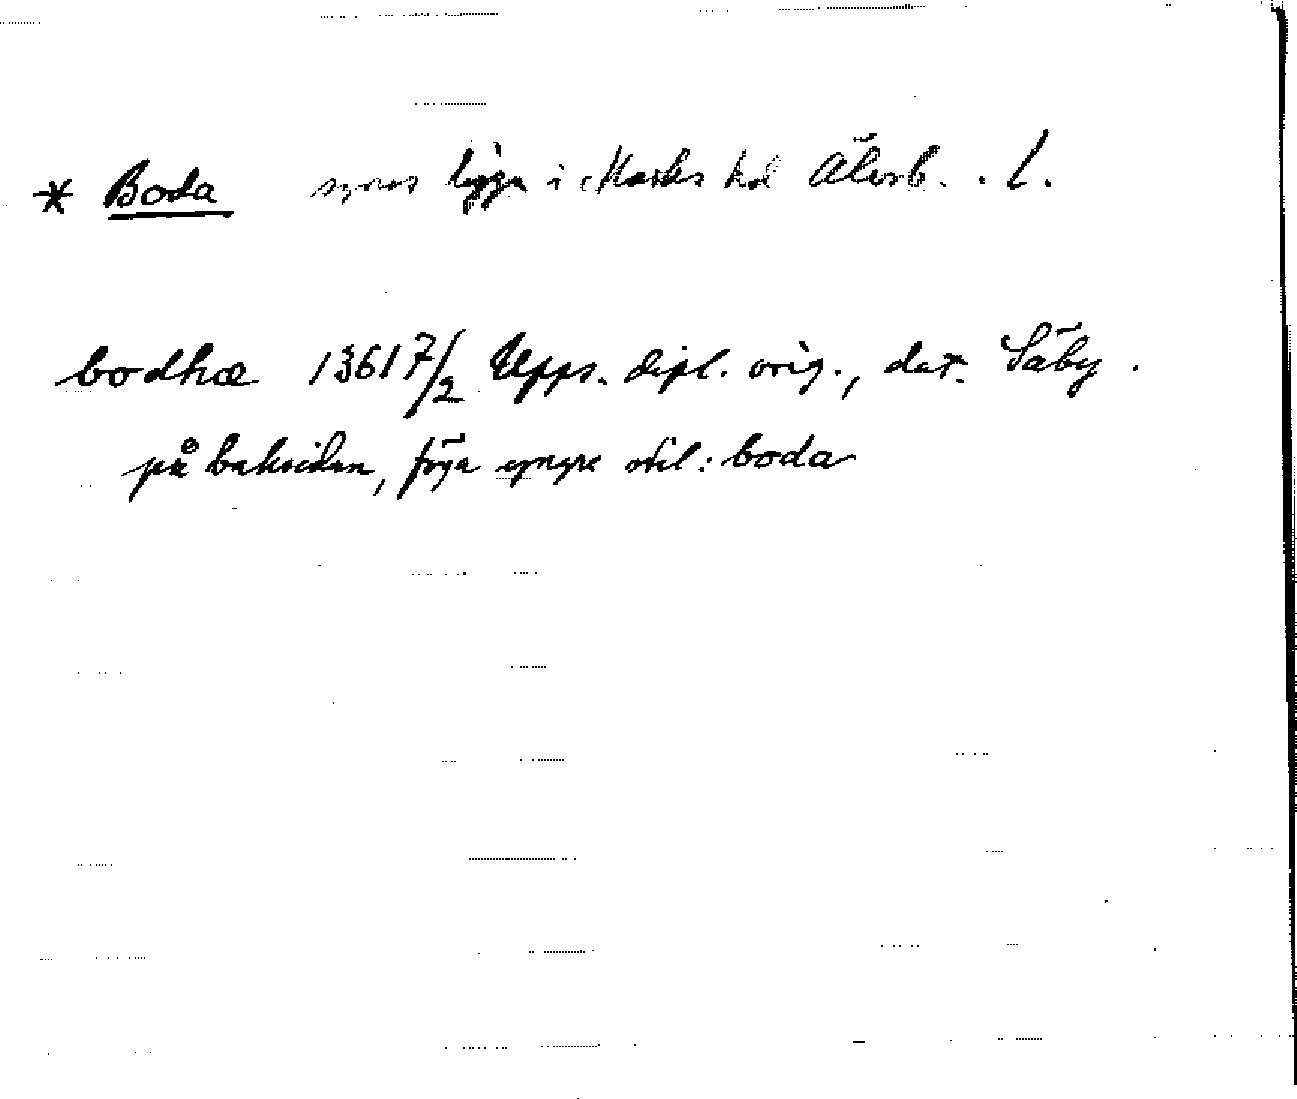 * Boda synes ligga i Marks hd Älvsb. l.
bodhæ 1361 7/2 Upps. dipl. orig., dat. Säby.
på baksidan, föga yngre stil: boda